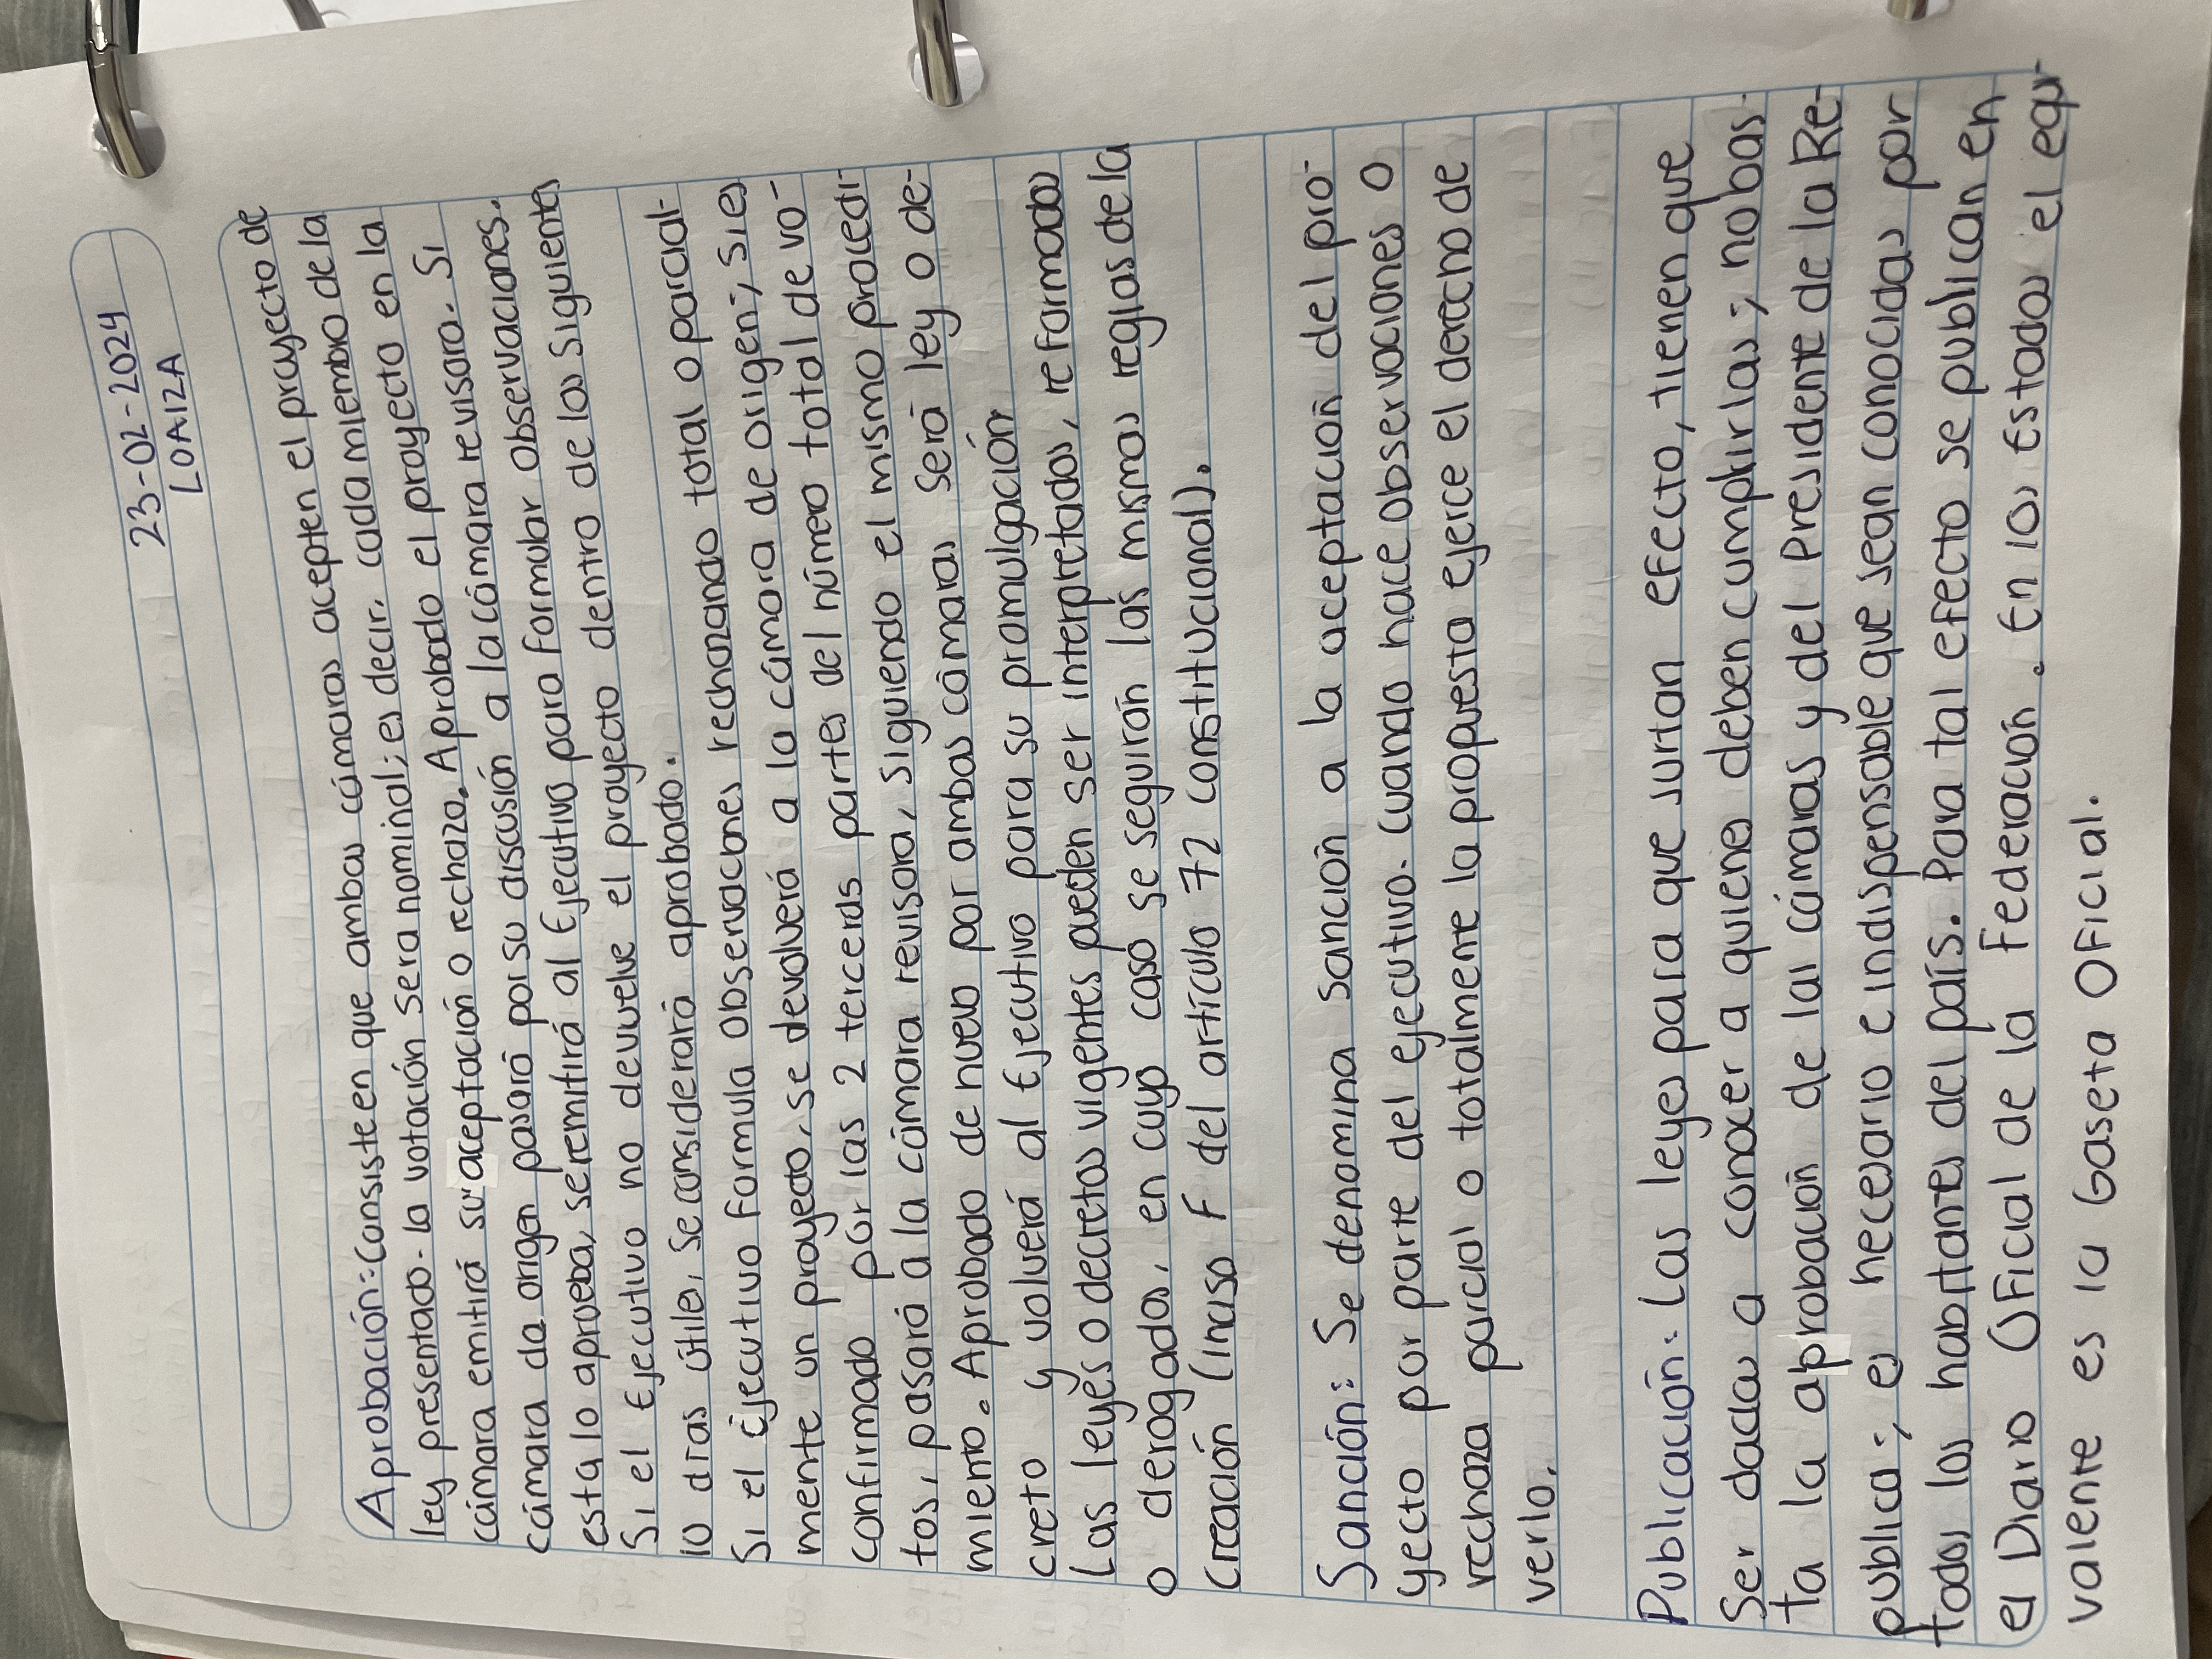 23-02-2024
LOAIZA
Aprobación: Consiste en que ambas cámaras acepten el proyecto de
ley presentado. la votación sera nominal; es decir, cada miembro de la
cámara emitirá su aceptación o rechazo. Aprobado el proyecto en la
cámara de origen pasará por su discusión a la cámara revisora. Si
esta lo aprueba, se remitirá al Ejecutivo para formular observaciones.
Si el Ejecutivo no devuelve el proyecto dentro de los siguientes
10 dias útiles, se considerará aprobado.
Si el Ejecutivo formula observaciones rechazando total o parcial-
mente un proyecto, se devolverá a la cámara de origen; si es
confirmado por las 2 terceras partes del número total de vo-
tos, pasará a la cámara revisora, siguiendo el mismo procedi-
miento. Aprobado de nuevo por ambas cámaras será ley o de-
creto y volverá al Ejecutivo para su promulgación
Las leyes o decretos vigentes pueden ser interpretados, reformados
o derogados, en cuyo caso se seguirán las mismas reglas de la
creación (Inciso F del artículo 72 constitucional).
Sanción: Se denomina sanción a la aceptación del pro-
yecto por parte del ejecutivo. Cuando hace observaciones o
rechaza parcial o totalmente la propuesta ejerce el derecho de
verlo.
Publicación: Las leyes para que surtan efecto, tienen que
Ser dadas a conocer a quienes deben cumplirlas; no bas-
ta la aprobación de las cámaras y del Presidente de la Re-
publica; es necesario e indispensable que sean conocidas por
todos los habitantes del país. Para tal efecto se publican en
el Diario Oficial de la Federación. En los Estados el equi-
valente es la Gaseta Oficial.